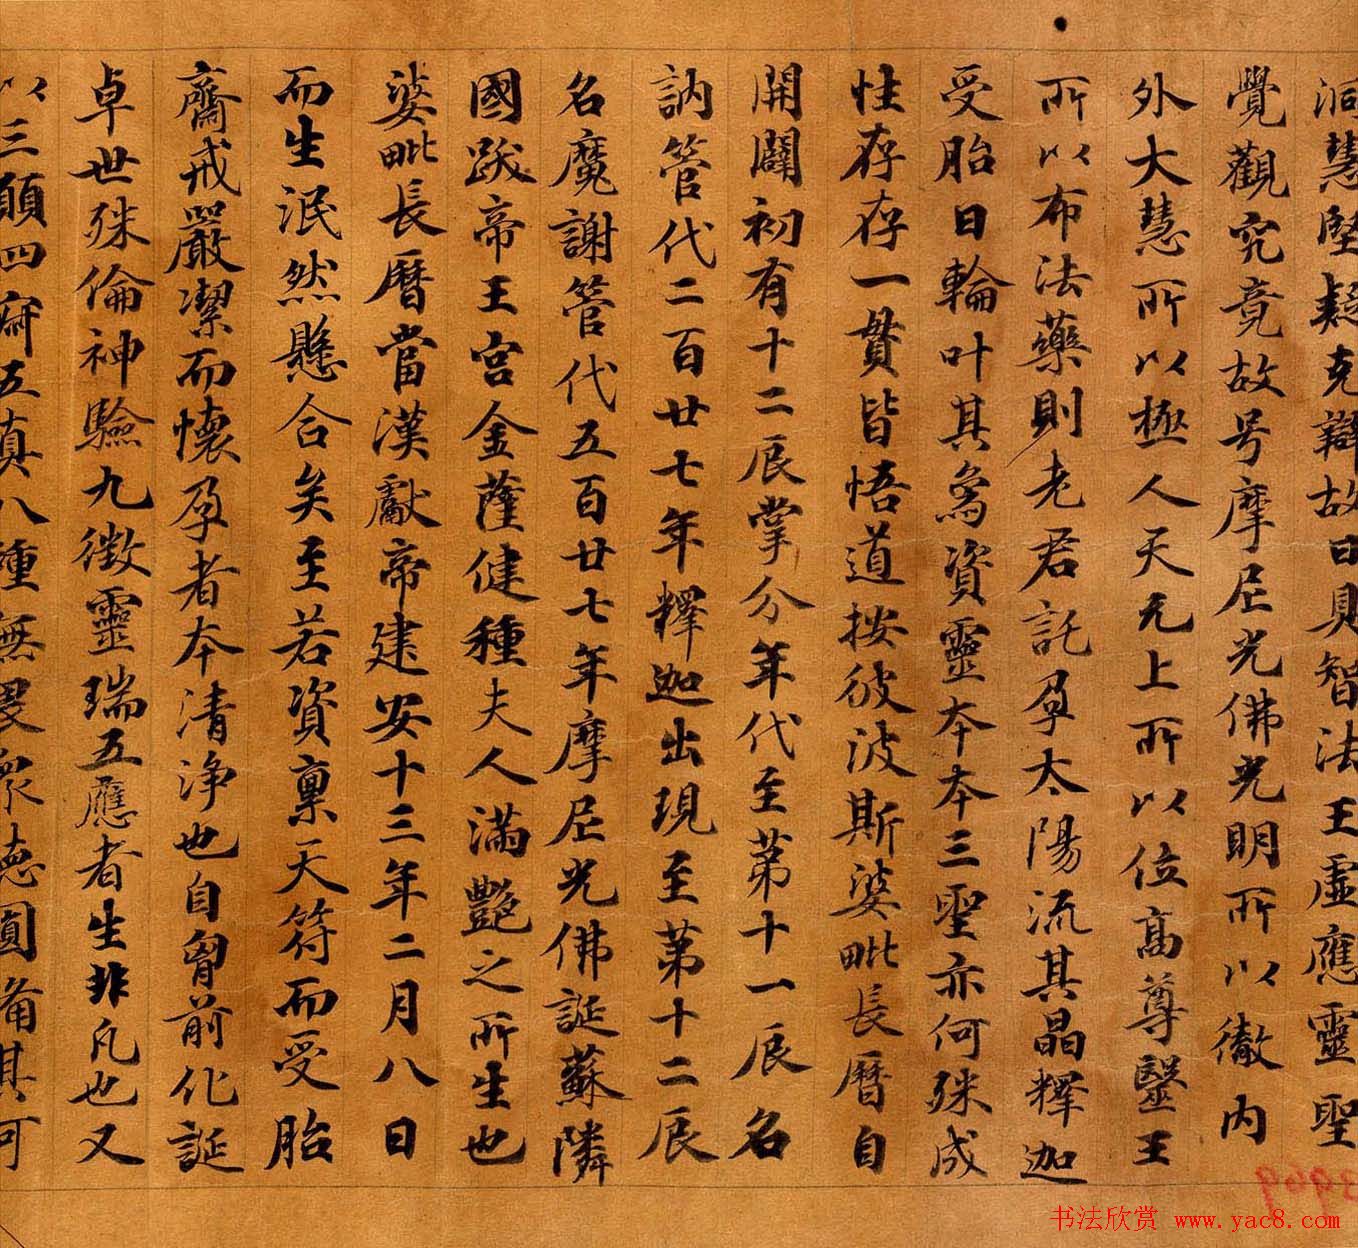 洞慧堅疑克辯故曰具智法王虛應靈聖
覺觀究竟故号摩尼光佛光明所以徹內
外大慧所以極人天无上所以位高尊醫王
所以布法藥則老君託孕太陽流其晶釋迦
受胎日輪叶其象資靈本本三聖亦何殊成
性存存一貫皆悟道按彼波斯婆毗長曆自
開闢初有十二辰掌分年代至第十一辰名
訥管代二百廿七年釋迦出現至第十二辰
名魔謝管代五百廿七年摩尼光佛誕蘇隣
國跋帝王宮金薩健種夫人滿艷之所生也
婆毗長曆當漢獻帝建安十三年二月八日
而生泯然懸合矣至若資稟天符而受胎
齋戒嚴潔而懷孕者本清淨也自胷前化誕
卓世殊倫神驗九徵靈瑞五應者生非凡也又
以三願四寂五真八種無畏眾德圓備其可
3969
书法欣赏 www.yac8.com